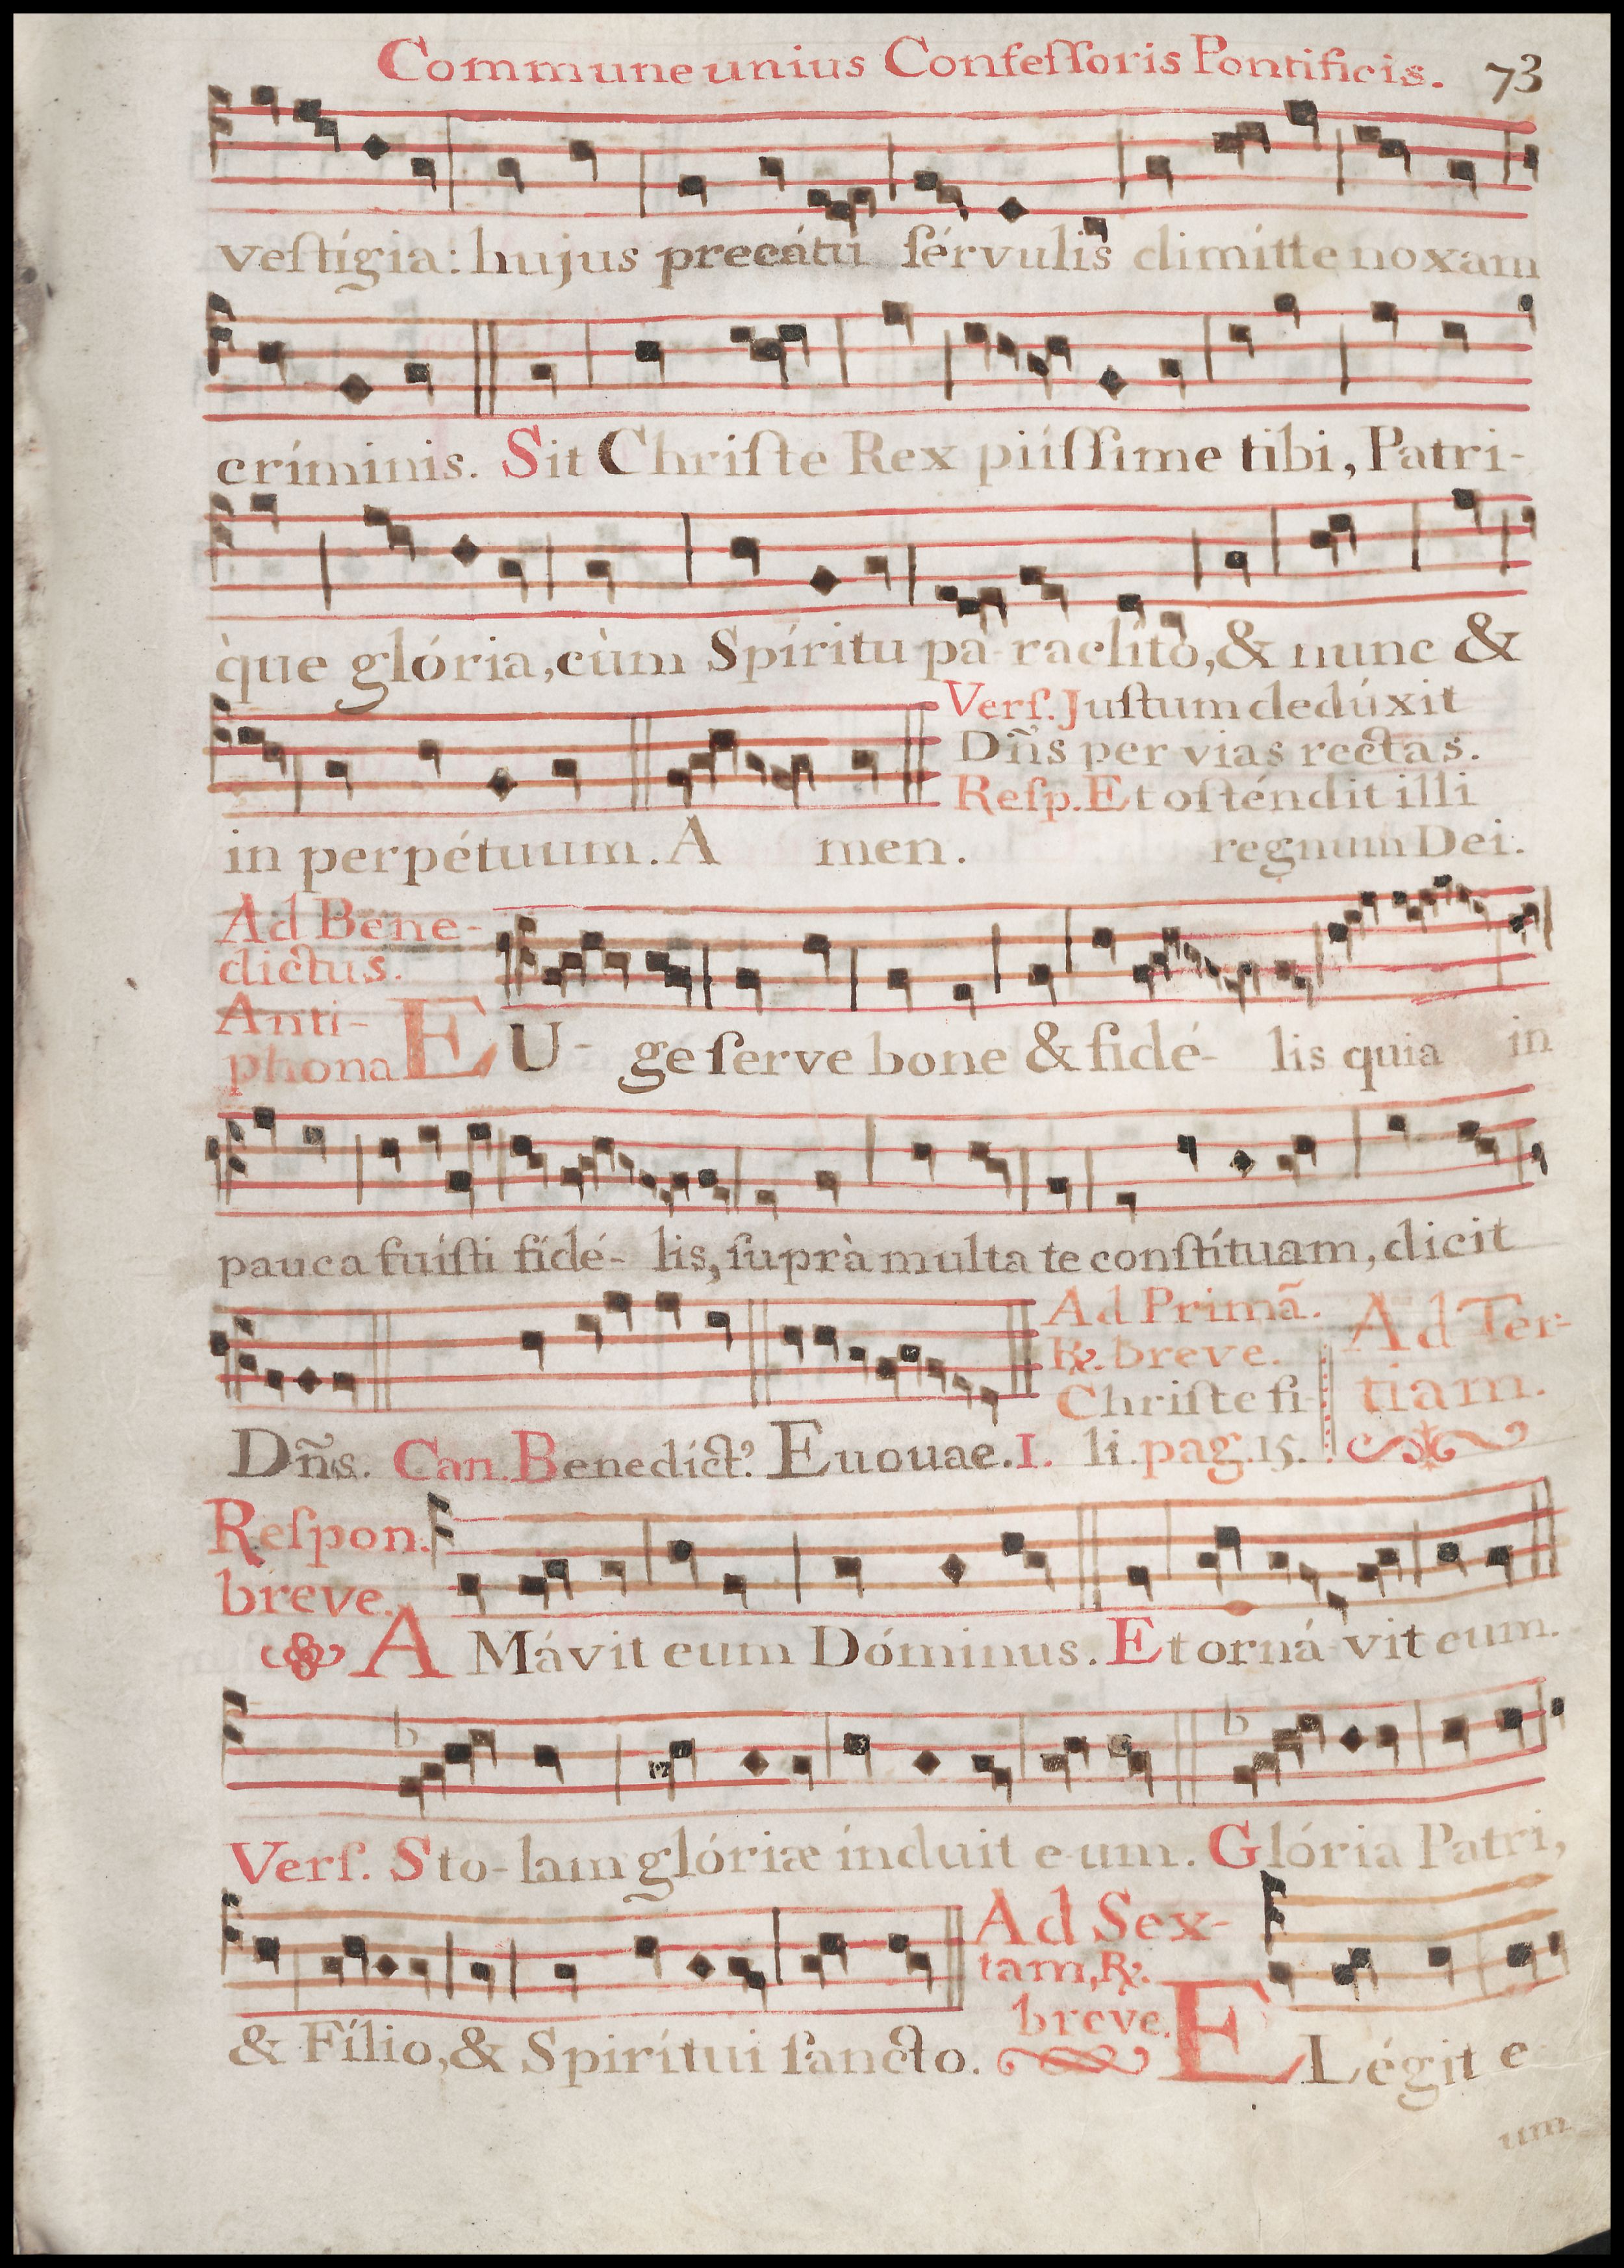 Commune unius Confeſſoris Pontificis. 73
veſtígia: hujus precátu ſérvulis dimítte noxam
críminis. Sit Chriſte Rex piíſſime tibi, Patri-
q̀ue glória, cùm Spíritu pa-raclíto, & nunc &
Verſ. Juſtum dedúxit
Dñs per vias rectas.
Reſp. Et oſténdit illi
in perpétuum. A men. regnum Dei.
Ad Bene-
dictus.
Anti-
phona EU- ge ſerve bone & fidé- lis quia in
pauca fuíſti fidé- lis, ſuprà multa te conſtítuam, dicit
Ad Primã. Ad Ter-
℞. breve. tiam.
Chriſte fi-
Dñs. Can. Benedíct.' Euouae. I. li. pag. 15.
Reſpon.
breve.
AMávit eum Dóminus. Et orná-vit eum.
Verſ. Sto-lam glóriæ índuit e-um. Glória Patri,
Ad Sex-
tam, ℞.
breve.
& Fílio, & Spirítui ſancto. ELégit e
um